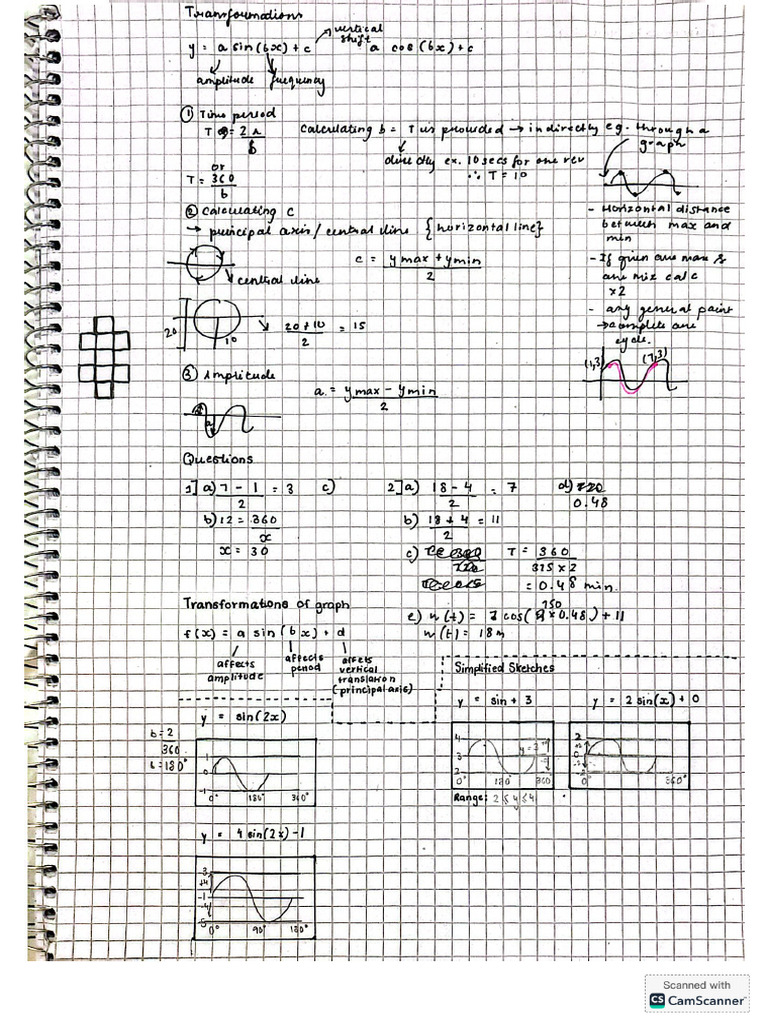 Transformations
y = a sin(bx) + c
vertical shift
a cos(bx)+c
amplitude
frequency
① Time period
T = 2π
b
or
T = 360
b
Calculating b = T is provided → indirectly eg. through a graph
directly ex. 10 secs for one rev
∴ T = 10
- Horizontal distance
between max and
min
- If given one max &
one min calc
×2
- any general point
→ complete one
cycle.
(1,3)
(7,3)
② Calculating C
→ principal axis/central line {horizontal line}
c = ymax + ymin
2
central line
20
10
20 + 10 = 15
2
③ Amplitude
a
a = ymax - ymin
2
Questions
1] a) 7 - 1 = 3
2
c)
b) 12 = 360
x
x = 30
2] a) 18 - 4 = 7
2
d)
0.48
b) 18 + 4 = 11
2
c)
T = 360
375 × 2
= 0.48 min.
750
× 0.48) + 11
18m
Transformations of graph
f(x) = a sin(bx) + d
affects
amplitude
affects
period
affets
vertical
translation
(principal axis)
y = sin(2x)
b = 2
360
b = 180°
1
0
-1
0°
180°
360°
y = 4 sin(2x) - 1
3
+4
-1
-4
-5
0°
90°
180°
Simplified Sketches
y = sin + 3
4
3
2
0°
180°
360
Range: 2 ≤ y ≤ 4
y = 2 sin(x) + 0
2
0
0°
360°
Scanned with
CS CamScanner